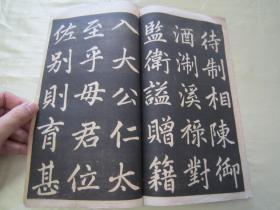 待制相陳御
酒淛溪祿對
監衛謚贈籍
入大公仁太
至乎毋君位
佐别則育甚